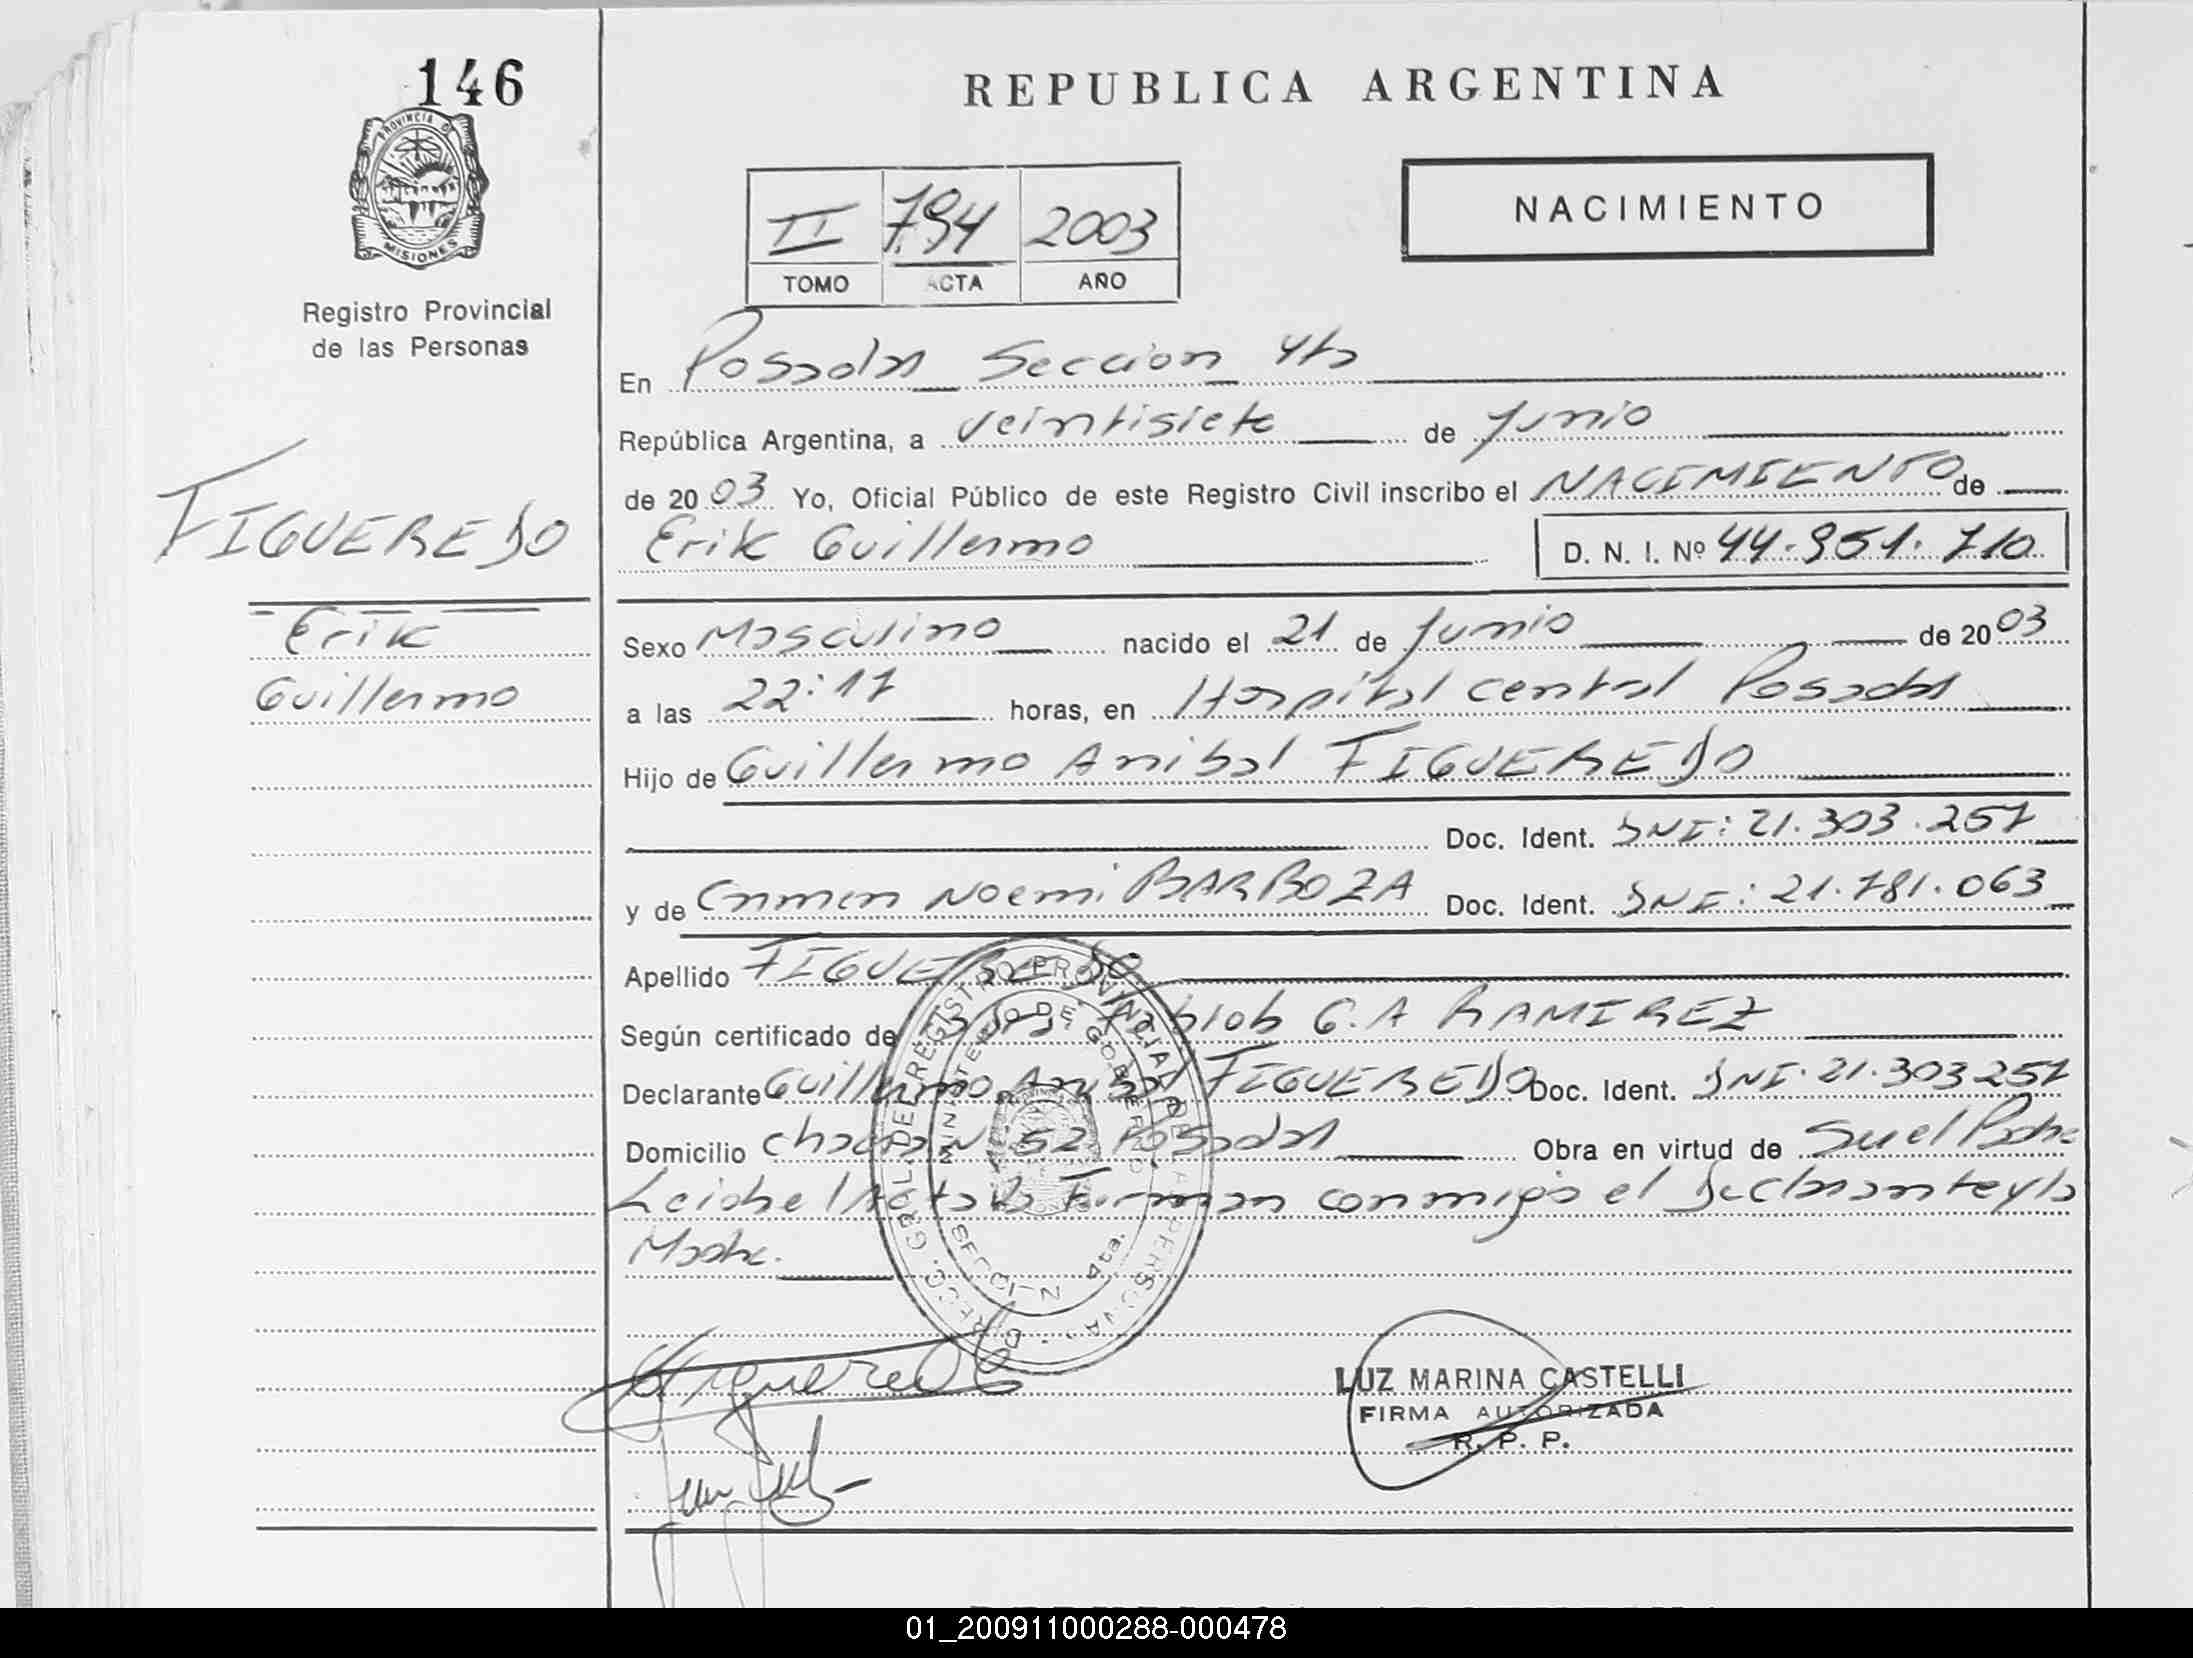 146
PROVINCIA D
MISIONES
Registro Provincial
de las Personas
FIGUEREDO
Erik
Guillermo
REPUBLICA ARGENTINA
II 794 2003
TOMO ACTA AÑO
NACIMIENTO
En Posadas Seccion 4ta
República Argentina, a veintisiete de Junio
de 2003 Yo, Oficial Público de este Registro Civil inscribo el NACIMIENTO de
Erik Guillermo D. N. I. Nº 44.951.710
Sexo Masculino nacido el 21 de Junio de 2003
a las 22:17 horas, en Hospital Central Posadas
Hijo de Guillermo Anibal FIGUEREDO
Doc. Ident. DNI: 21.303.257
y de Carmen Noemi BARBOZA Doc. Ident. DNI: 21.781.063
Apellido FIGUEREDO
Según certificado de G.A RAMIREZ
Declarante Guillermo Anibal FIGUEREDO Doc. Ident. DNI. 21.303257
Domicilio Chacra Nº 52 Posadas Obra en virtud de Su el Padre
Leida el Acta la Firman conmigo el Declarante y la
Madre.
DIRECC. GRAL. DE REGISTRO PROVINCIAL DE LAS PERSONAS
MINISTERIO DE GOBIERNO
SECCION 4ta.
Figueredo
LUZ MARINA CASTELLI
FIRMA AUTORIZADA
R. P. P.
01_200911000288-000478